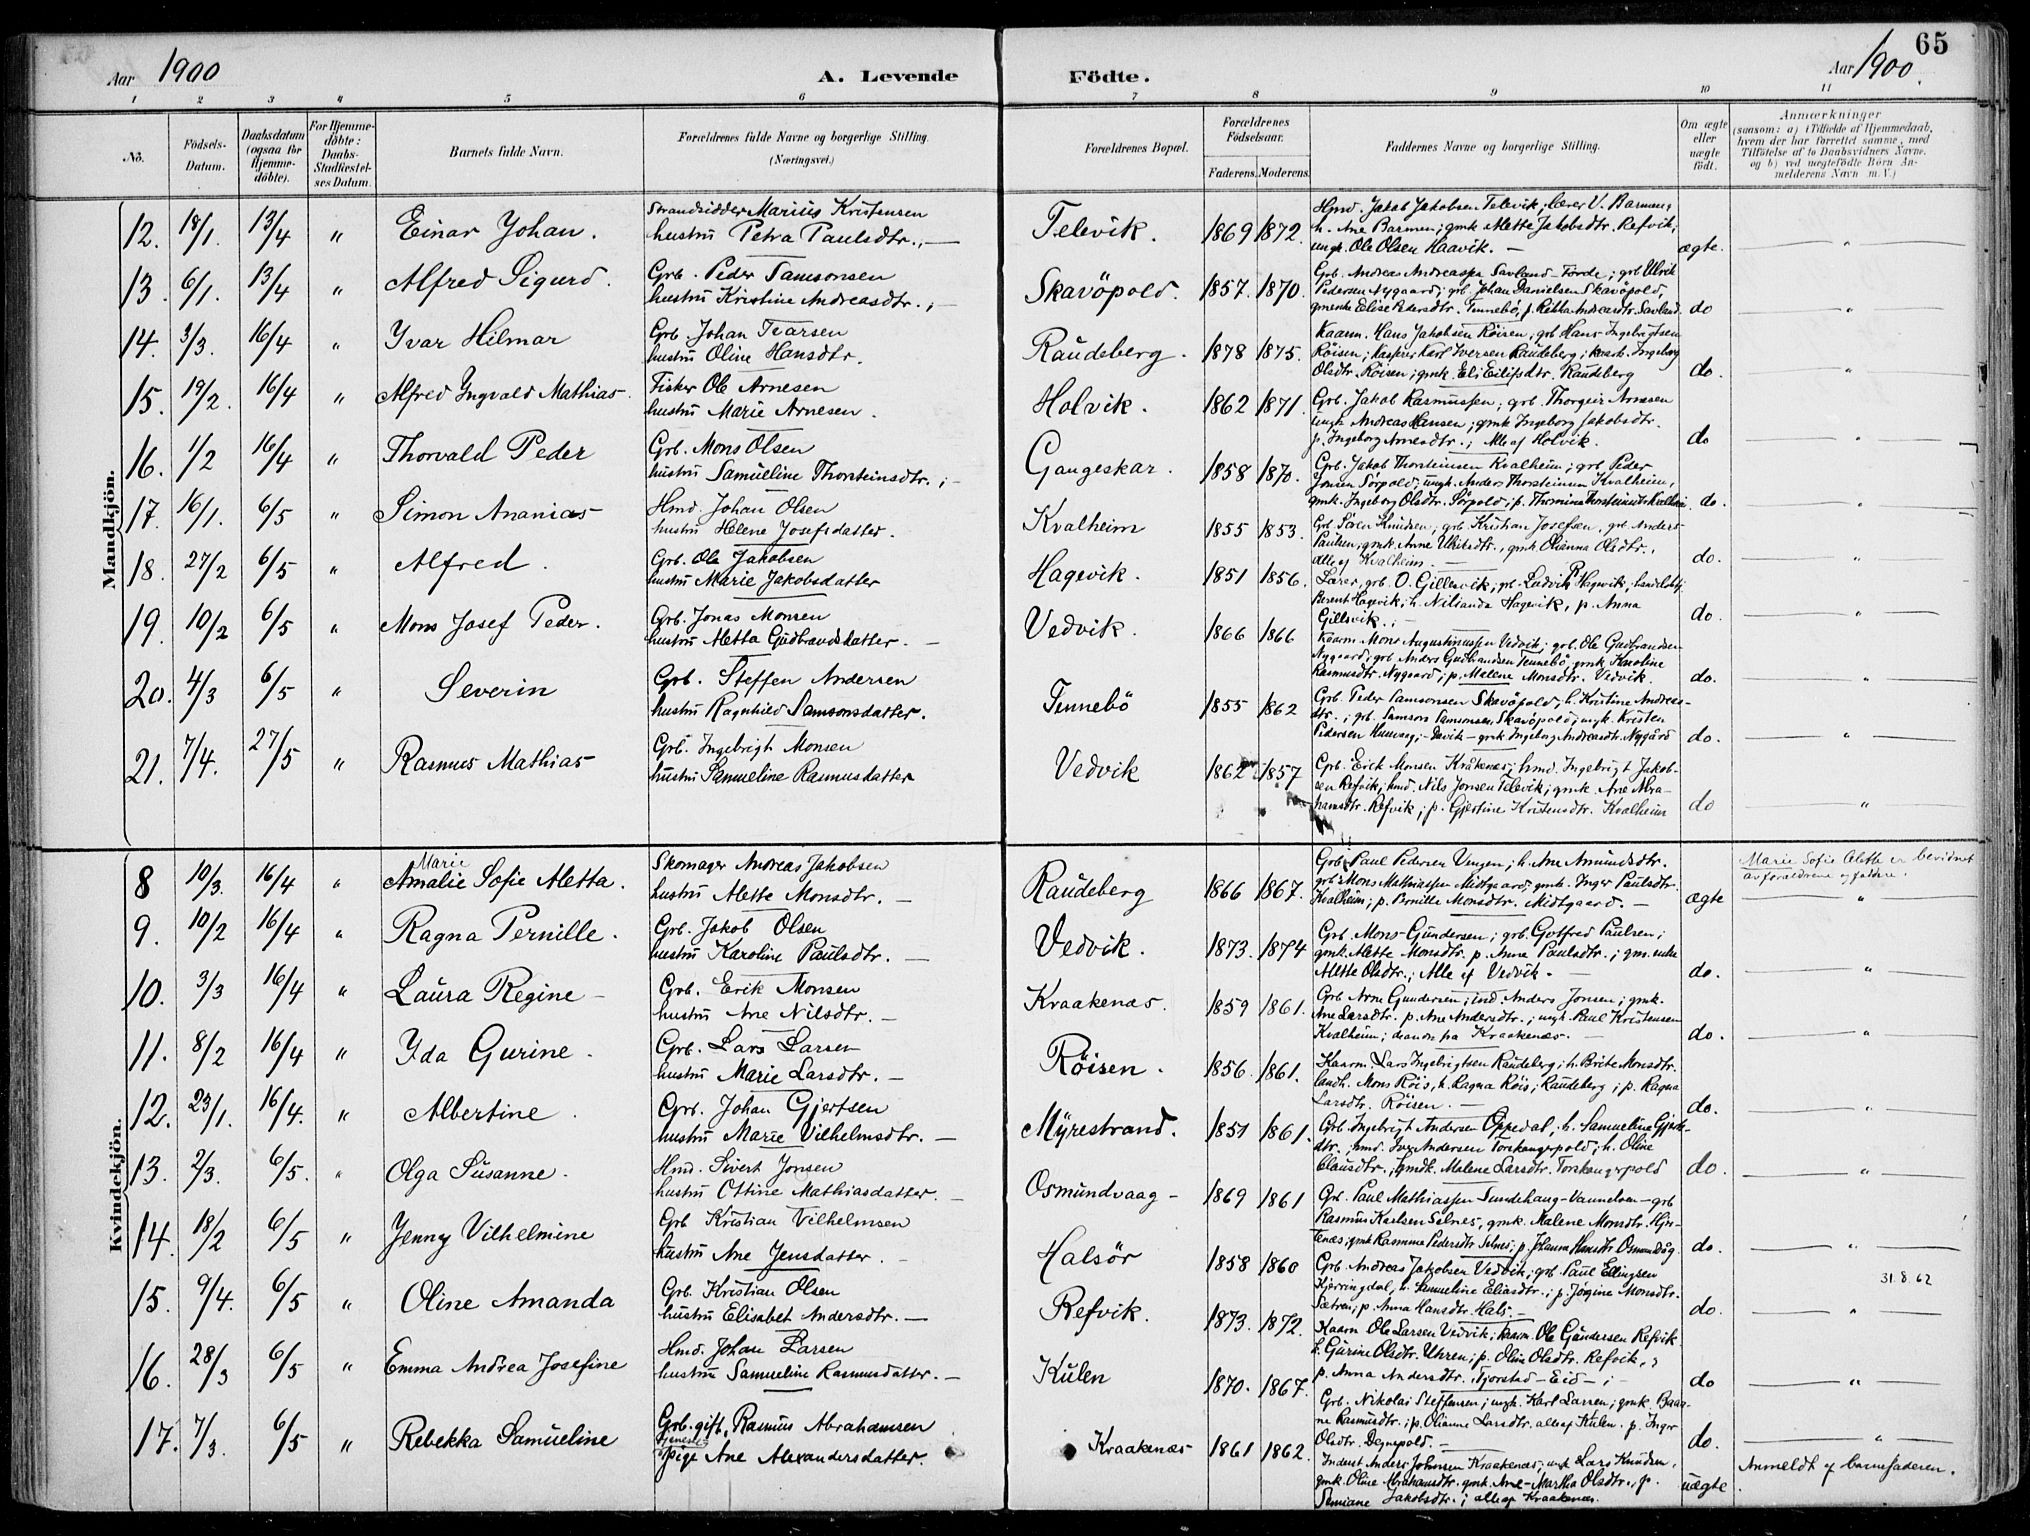 65
Aar 1900
A. Levende
Födte.
Aar 1900
1 2 3 4 5 6 7 8 9 10 11
No.
Födsels-Datum.
Daabsdatum (ogsaa for Hjemmedöbte).
For Hjemmedöbte: Daabs-Stadfæstelses Datum
Barnets fulde Navn.
Forældrenes fulde Navne og borgerlige Stilling. (Næringsvei.)
Forældrenes Bopæl.
Forældrenes Födselsaar.
Faderens. Moderens.
Faddernes Navne og borgerlige Stilling.
Om ægte eller uægte födt.
Anmærkninger
(saasom: a) i Tilfælde af Hjemmedaab,
hvem der har forrettet samme, med
Tilföielse af to Daabsvidners Navne.
og b) ved uægtefödte Börn Anmelderens Navn m. V.)
Mandkjön.
12. 18/1. 13/4 " Einar Johan. Strandsidder Marius Kristensen
hustru Petra Paulsdtr. Televik. 1869 1872. ægte.
Hmd. Jakob Jakobsen Televik; lærer V. Barmen;
h. Ane Barmen; gmk Mette Jakobsdtr. Refvik;
ungk. Ole Olsen Haavik.
13. 6/1. 13/4 " Alfred Sigurd. Grb. Peder Samsonsen
hustru Kristine Andreasdtr. Skavöpold. 1857. 1870. do
Pedersen Nygaard; grb. Johan Danielsen Skavöpold,
14. 3/3. 16/4 " Ivar Hilmar Grb. Johan Ivarsen
hustru Oline Hansdtr. Raudeberg. 1878 1875. do.
Kaarm. Hans Jakobsen Röisen; grb Hans Ingebrigtsen
Röisen; Karl Iversen Raudeberg; Ingeborg
Olsdtr. Röisen; gmk. Eli Eilifsdtr. Raudeberg
15. 19/2. 16/4 " Alfred Ingvald Mathias. Fisker Ole Arnesen
hustru Marie Arnesen. Holvik. 1862 1871. do
Grb. Jakob Rasmussen; grb. Thorgeir Arnesen
ungk. Andreas Hansen; gmk Ingeborg Jakobsdtr.
p. Ingeborg Arnesdtr.; Alle af Holvik.
16. 1/2 16/4 " Thorvald Peder Grb. Mons Olsen
hustru Samueline Thorsteinsdtr. Gangeskar. 1858 1870. do.
Grb. Jakob Thorsteinsen Kvalheim; grb Peder
Jonsen Sörpold; ungk. Anders Thorsteinsen Kvalheim,
gmk. Ingeborg Olsdtr. Sörpold;
17. 16/1. 6/5 " Simon Ananias Hmd. Johan Olsen
hustru Helene Josefsdatter. Kvalheim 1855 1853. do.
Grb Sören Knudsen; grb. Kristian Josefsen, grb Anders
Paulsen; gmk. Anne, gmk. Olianna Olsdtr.,
alle af Kvalheim.
18. 27/2 6/5 " Alfred. Grb. Ole Jakobsen
hustru Marie Jakobsdatter Hagevik. 1851 1856. do.
Berent Hagevik; h. Nilianda Hagevik, p. Anna
Gillesvik.
19. 10/2 6/5 " Mons Josef Peder. Grb. Jonas Monsen
hustru Aletta Gudbrandsdatter. Vedvik. 1866 1866 do.
Kaarm Mons Augustinussen Vedvik; grb. Ole Gudbrandsen
Nygaard; grb Anders Gudbrandsen Tennebö, gmk Karoline
Rasmusdtr. Nygaard; p. Malene Monsdtr. Vedvik.
20. 4/3 6/5 " Severin Grb. Steffen Andersen
hustru Ragnhild Samsonsdatter. Tennebö 1855 1862 do.
Grb Peder Samsonsen Skavöpold, h. Kristine Andreas-
dtr.; grb. Samson Samsonsen Skavöpold; ungk. Kristen
21. 7/4. 27/5 " Rasmus Mathias Grb. Ingebrigt Monsen
hustru Samueline Rasmusdatter Vedvik 1862 1857 do
Grb. Erick Monsen Kråkenæs; hmd. Ingebrigt Jakob-
sen Refvik; hmd. Nils Jonsen Televik; gmk. Ane Abra-
hamsdtr. Refvik; p. Gjertine Kristensdtr. Kvalheim
Kvindekjön.
8 10/3. 16/4 " Marie
Amalie Sofie Aletta. Skomager Andreas Jakobsen
hustru Alette Monsdtr. Raudeberg 1866 1867. ægte
Grb. Paul Pedersen Vengen; h. Ane Amundsdtr.
grb Mons Mathiassen Midtgaard, gmk. Inger Paulsdtr.
Kvalheim; p. Pernille Monsdtr. Midtgaard.
Marie Sofie Alette er bevidnet
av foreldrene og faddere.
9. 10/2 16/4 " Ragna Pernille. Grb. Jakob Olsen
hustru Karoline Paulsdtr. Vedvik. 1873. 1874 do.
Grb. Mons Gundersen; grb. Gotfred Paulsen;
gmk. Alette Monsdtr. p. Anna Paulsdtr.; gm. enke
Alette Olsdtr.; Alle af Vedvik.
10. 3/3 16/4 " Laura Regine Grb. Erik Monsen
hustru Ane Nilsdtr. Kraakenæs. 1859 1861. do.
Grb Arne Gundersen; ind Anders Jonsen; gmk.
Ane Larsdtr. p. Ane Andersdtr.; ungk. Paul Kristensen
Kvalheim; de andre fra Kraakenæs.
11. 8/2 16/4 " Ida Gurine. Grb. Lars Larsen
hustru Marie Larsdtr. Röisen. 1856. 1861. do.
Kaarm. Lars Ingebrigtsen Raudeberg; h. Brite Monsdtr.
landh. Mons Röis, h. Ragna Röis, Raudeberg; p. Ragna
Larsdtr. Röisen.
12. 23/1. 16/4. " Albertine. Grb. Johan Gjertsen
hustru Marie Vilhelmsdtr. Myrestrand. 1851 1861. do.
Grb. Ingebrigt Andersen Oppedal, h. Samueline Gjerts-
dtr., hmd. Iver Andersen Torskangerpold; h. Oline
Clausdtr., gmk. Malene Larsdtr. Torskangerpold
13. 2/3. 6/5. " Olga Susanne. Hmd. Sivert Jonsen
hustru Ottine Mathiasdatter. Osmundvaag 1869 1861 do.
Grb. Paul Mathiassen Sundehaug - Vannelven - grb
Rasmus Karlsen Selnes, gmk. Malene Monsdtr.
14. 18/2 6/5 " Jenny Vilhelmine Grb Kristian Vilhelmsen
hustru Ane Jensdatter. Halsör 1858 1860 do.
Grb. Andreas Jakobsen Vedvik, grb. Paul Ellingsen
Kjerringdal, h. Samueline Eliasdtr.; p. Jörgine Monsdtr.
Sætren; p. Anna Hansdtr. Hals
31.8.62
15. 9/4. 6/5 " Oline Amanda Grb. Kristian Olsen
hustru Elisabet Andersdtr. Refvik. 1873. 1872. do.
Kaarm Ole Larsen Vedvik; kaarm. Ole Gundersen Refvik
h. Gurine Olsdtr. Uhren; p. Oline Olsdtr. Refvik,
p. Anna Andersdtr. Fjorstad - Eid
16. 28/3 6/5 " Emma Andrea Josefine Hmd. Johan Larsen
hustru Samueline Rasmusdatter. Kulen 1870. 1867. do
Grb. Nikolai Steffensen; ungk. Karl Larsen; gmk. Baan-
ne Rasmusdtr.; p. Olianne Larsdtr. alle af Kulen. p. Inger
Olsdtr. Degnepold.
17. 7/3. 6/5 " Rebekka Samueline Grb. gift, Rasmus Abrahamsen
pige Ane Alexandersdatter. Kraakenæs 1861 1862. uægte
Inderst Anders Johnsen Kraakenæs; Lars Knudsen,
gmk. Oline Abrahamsdtr. gmk. Ane-Martha Olsdtr., p.
Jakobsdtr.; alle af Kraakenæs.
Anmeldt af barnefaderen.